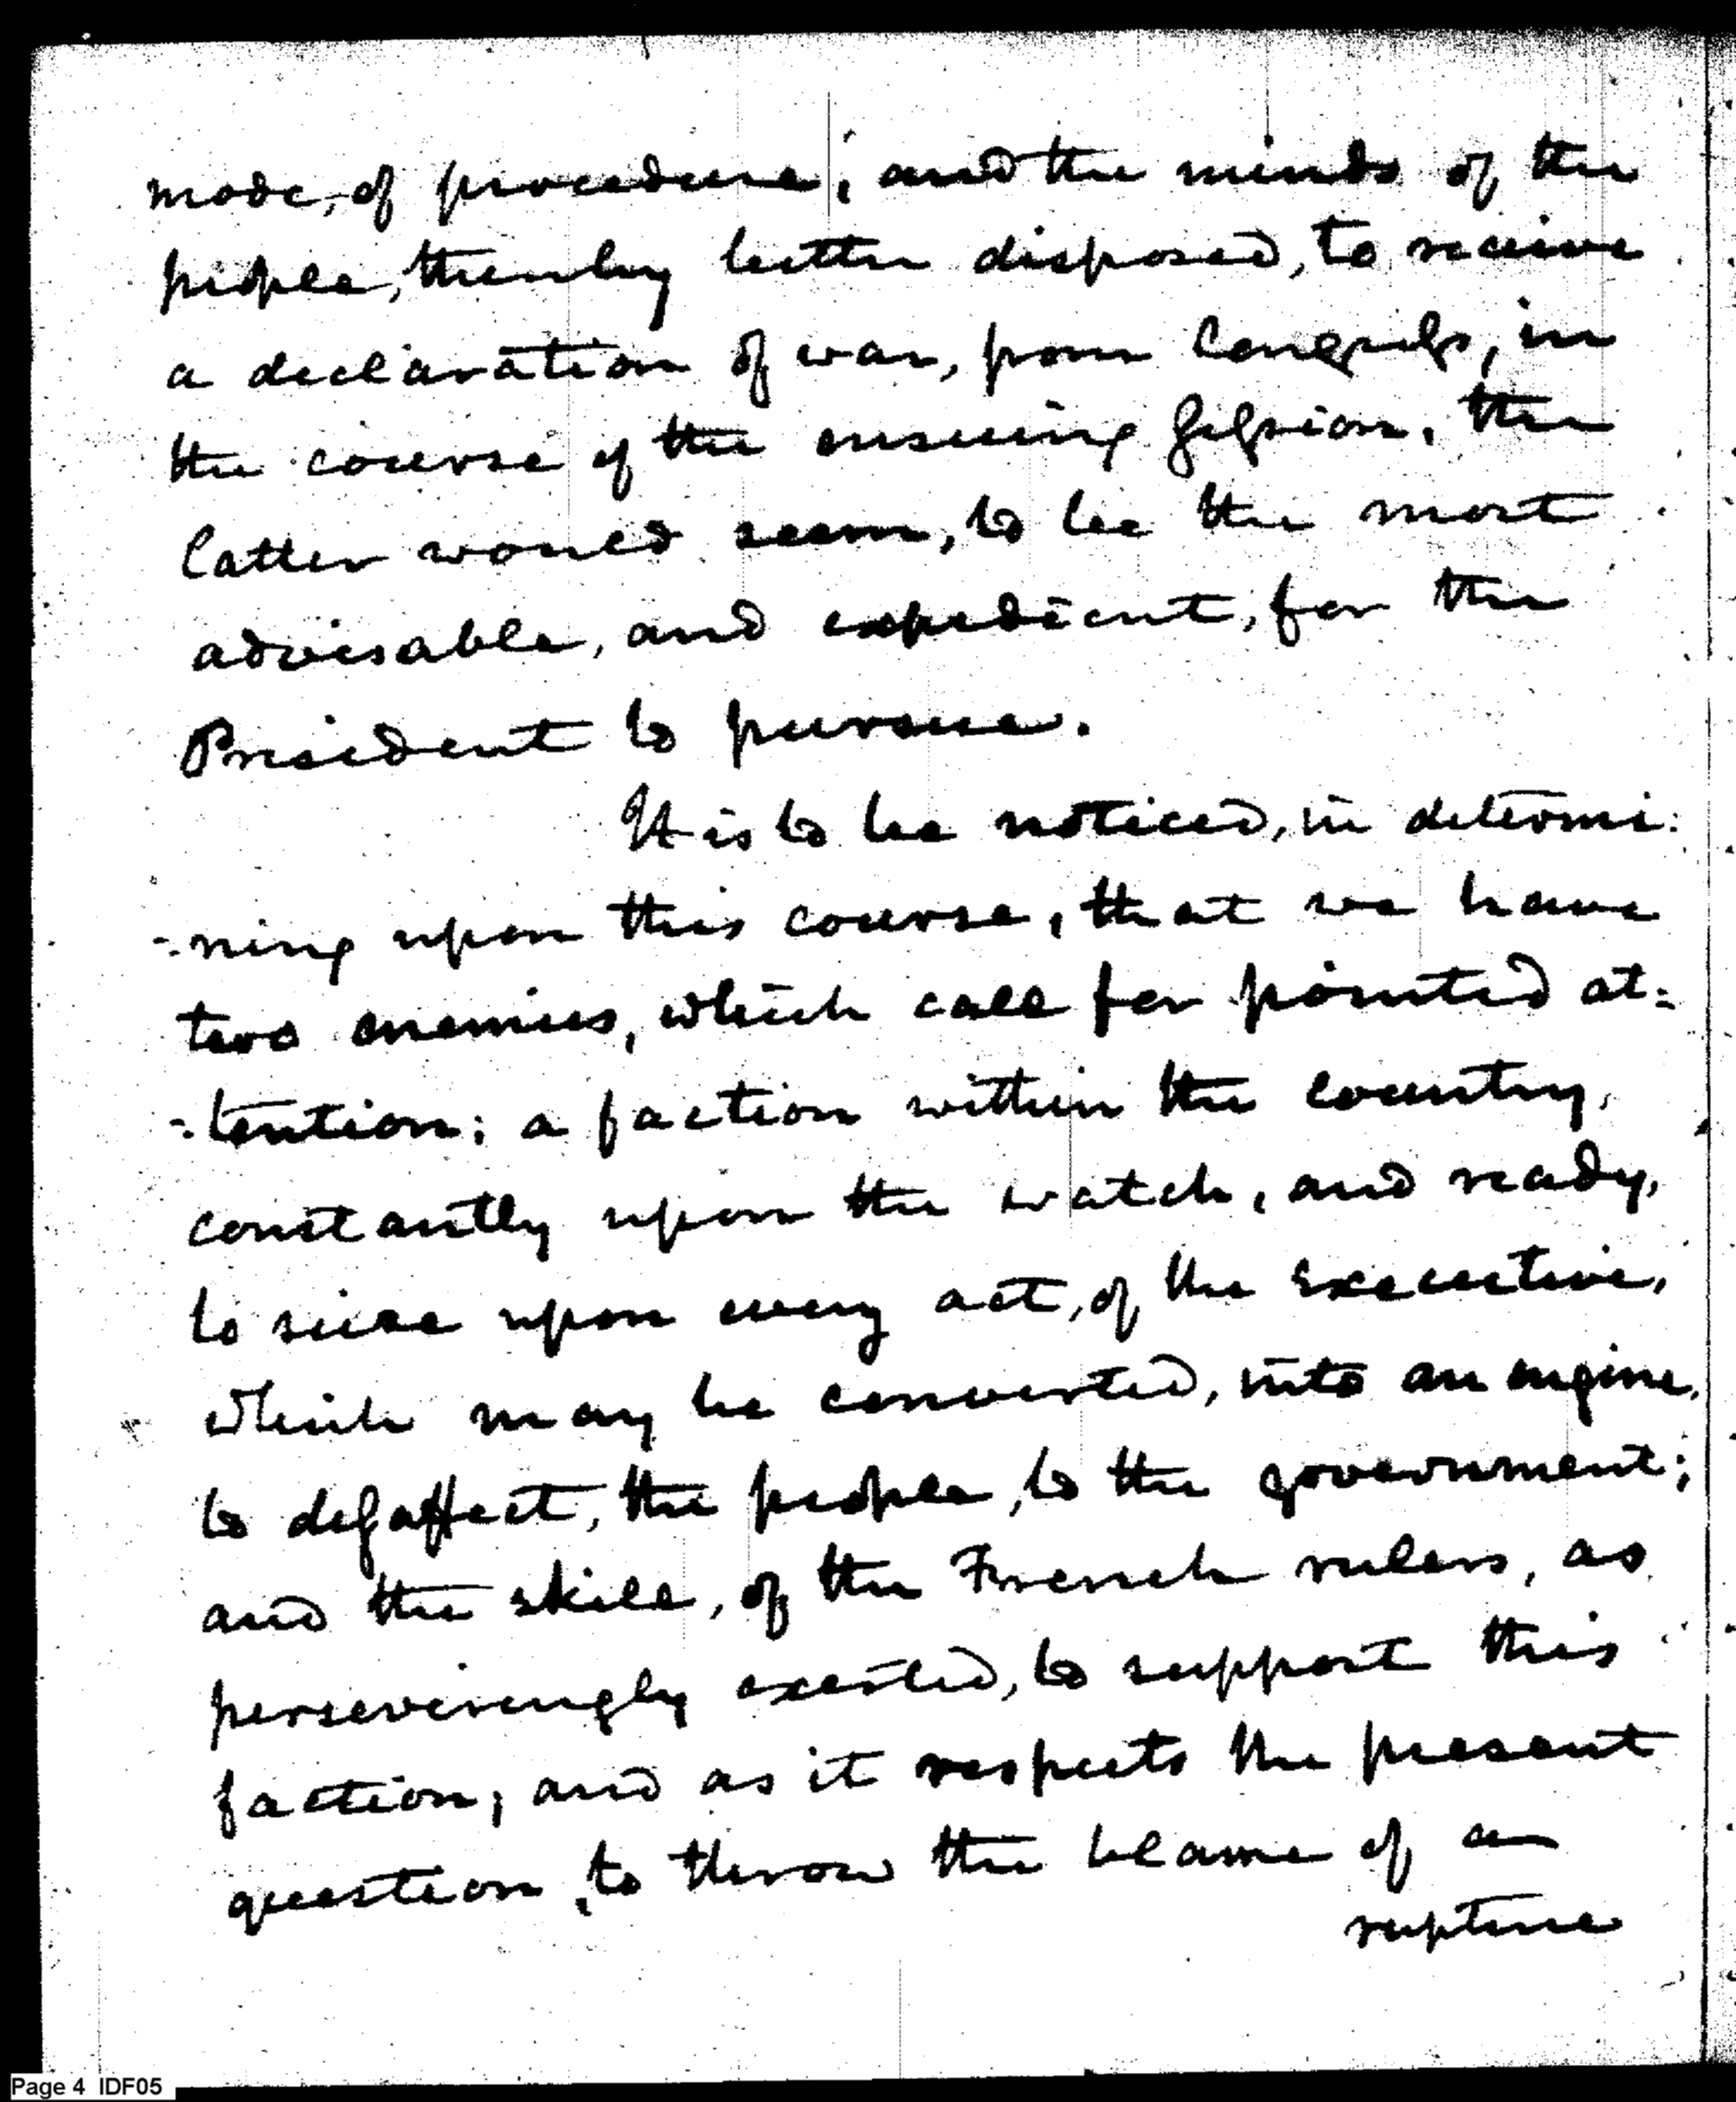 mode, of procedure; and the minds of the
people, thereby better disposed, to receive
a declaration of war, from Congress, in
the course of the ensuing Session, the
latter would seem, to be the most
advisable, and expedient, for the
President to pursue.
It is to be noticed, in determi:
-ning upon this course, that we have
two enemies, which call for pointed at=
=tention: a faction within the country,
constantly upon the watch, and ready,
to sieze upon every act, of the executive,
which may be converted, into an engine,
to dissaffect, the people, to the government;
and the skill, of the French rulers, as
perseveringly exerted, to support this
faction, and as it respects the present
question, to throw the blame of a
rupture
Page 4 IDF05